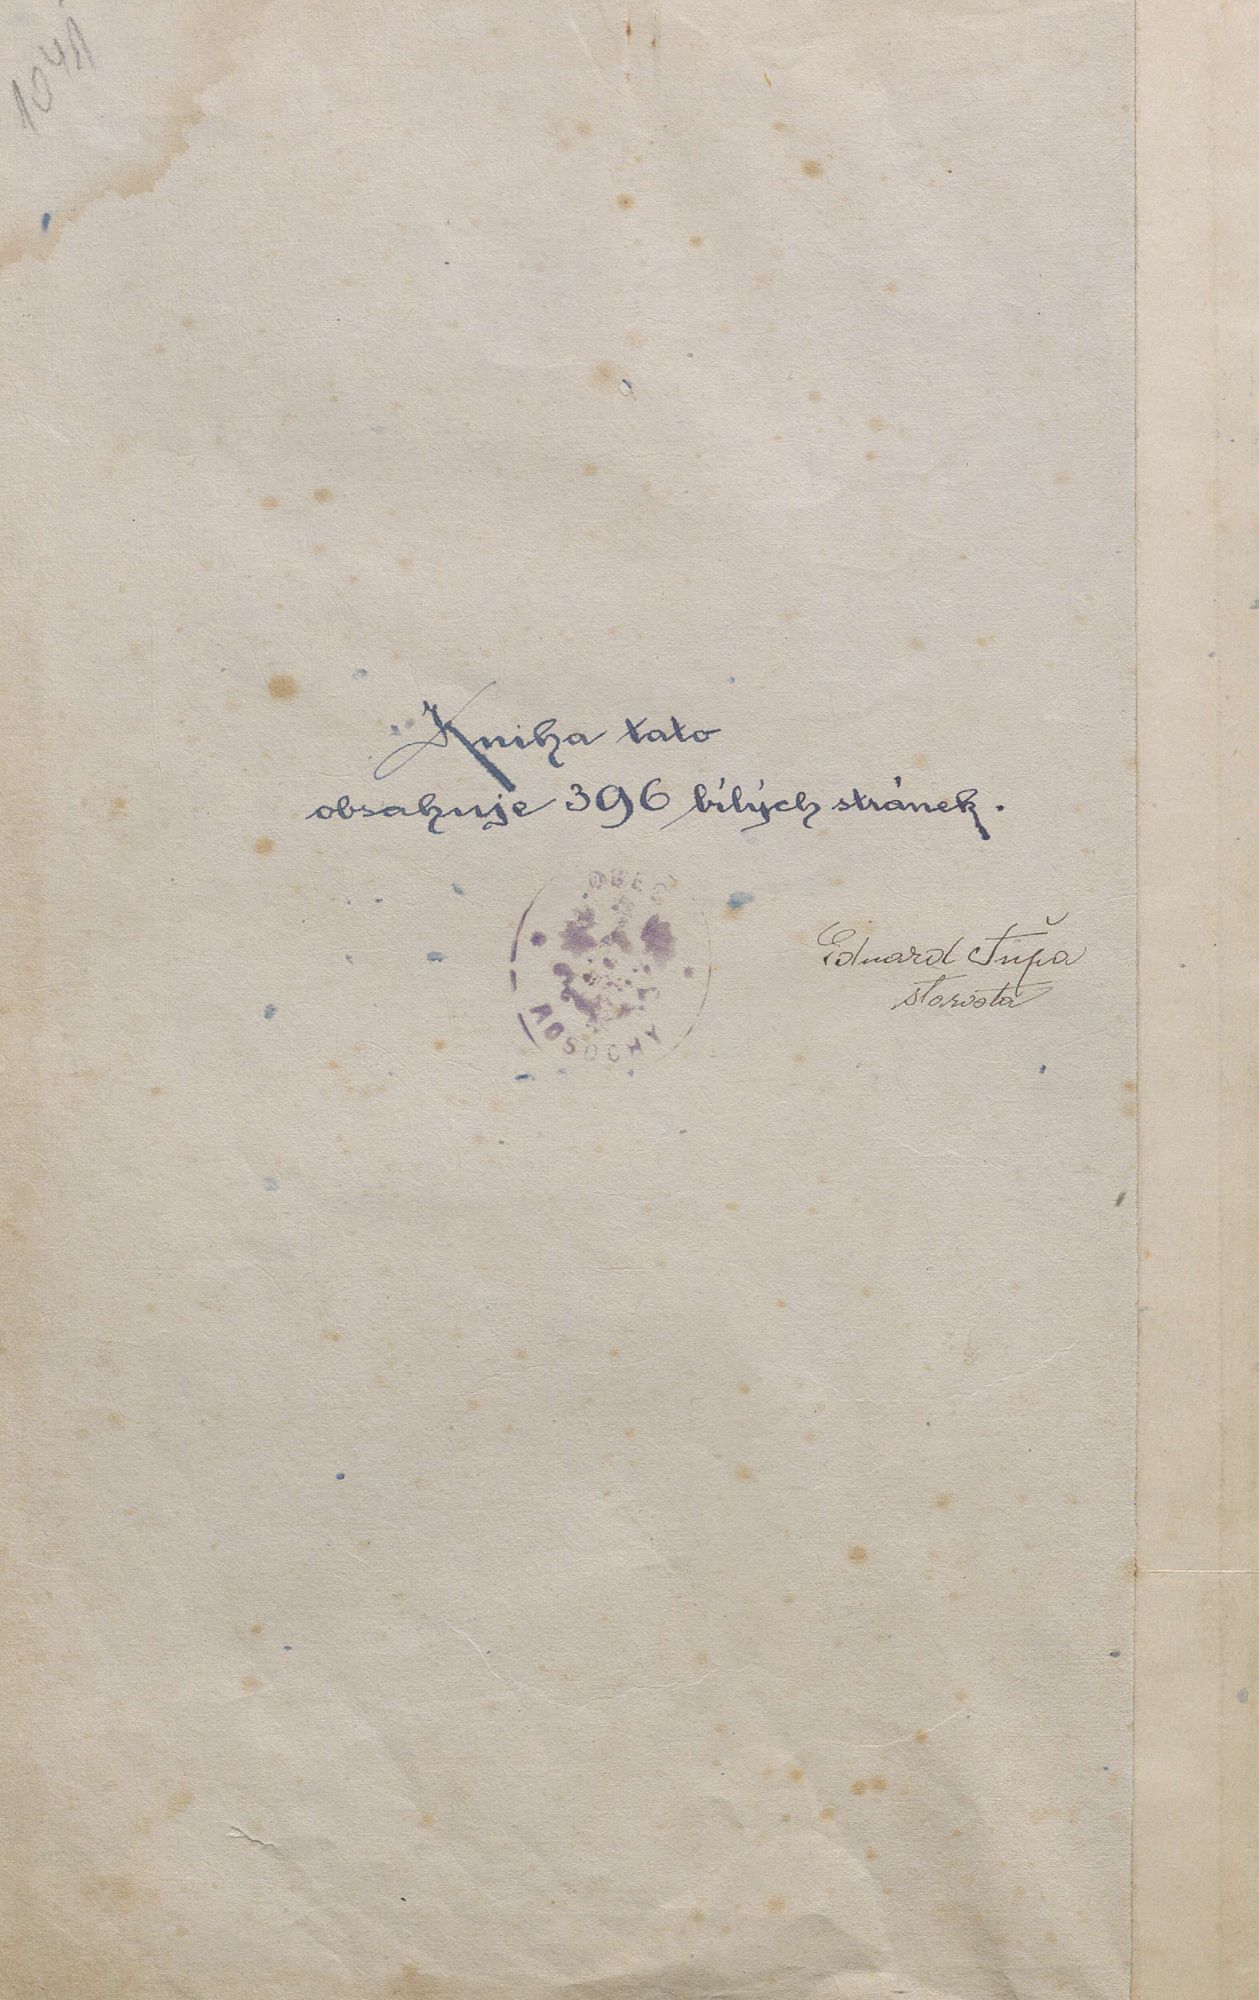 1041
Kniha tato
obsahuje 396 bílých stránek.
OBEC
ROSOCHY
Eduard
starosta